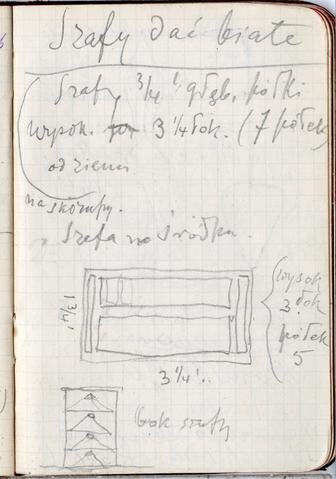 Szafy dać białe
Szafy 3/4 ł. głęb. półki
wysok. 3 1/4 łok. (7 półek)
od ziemi
na skorupy.
Szafa na środku.
wysok
3 łok
półek
5
1 3/4 ł.
3 1/4 ł.
bok szafy